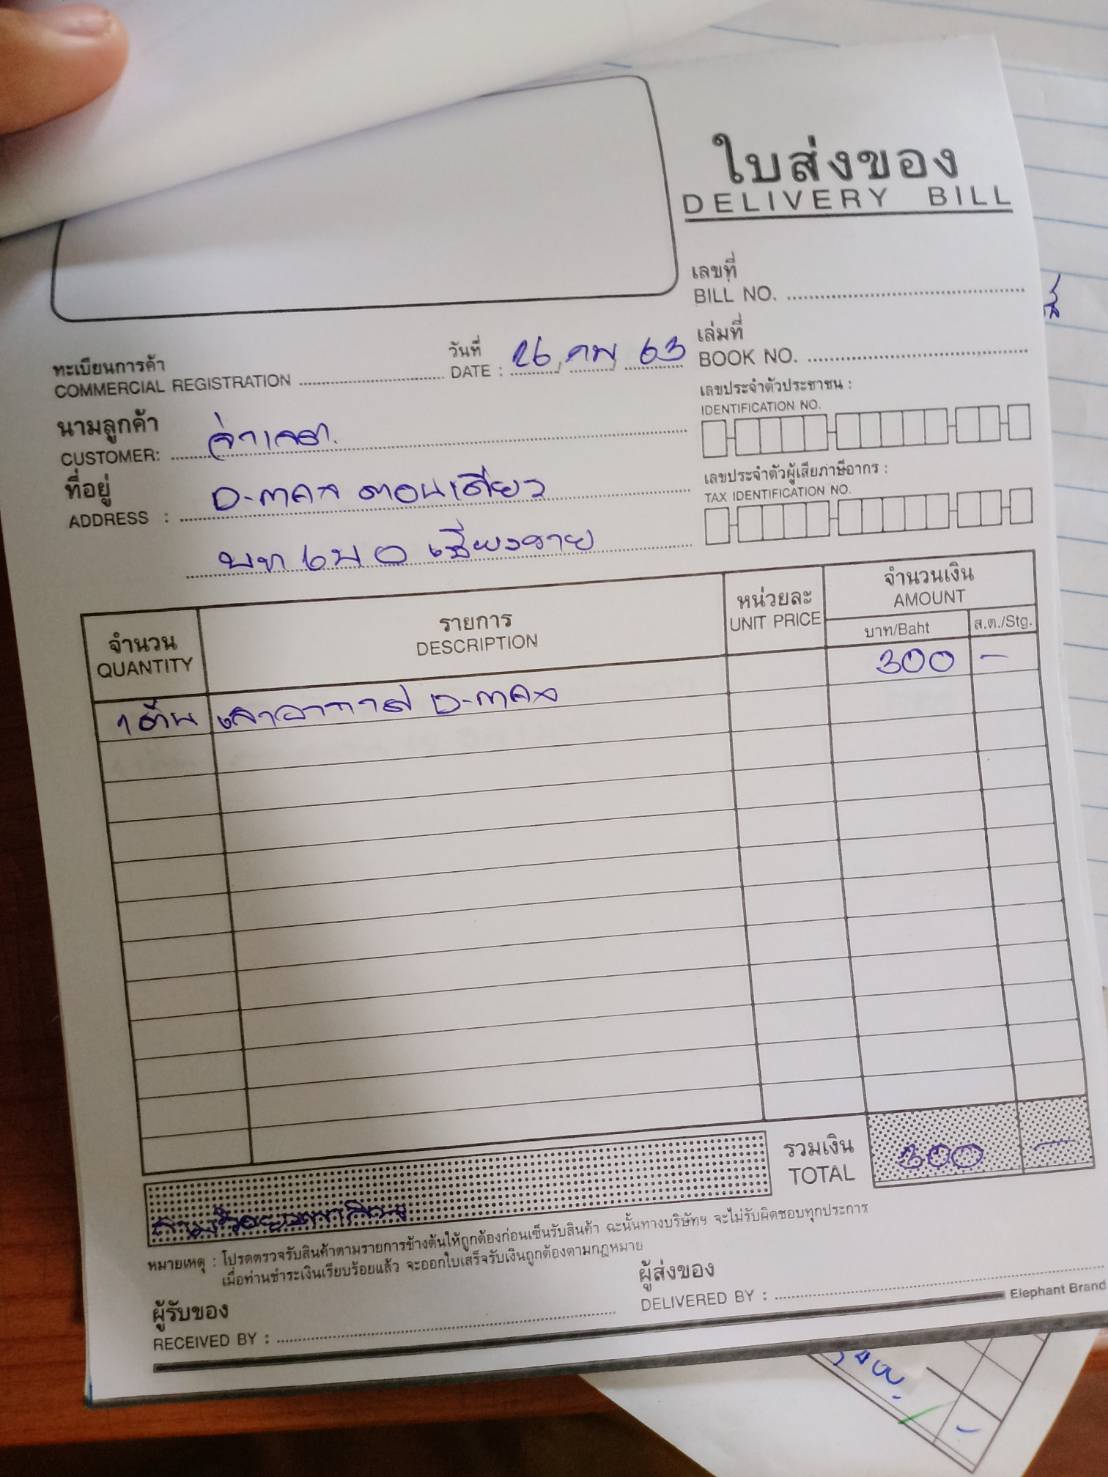 ใบส่งของ
DELIVERY BILL
เลขที่
BILL NO.
เล่มที่
BOOK NO.
ทะเบียนการค้า
COMMERCIAL REGISTRATION
วันที่
DATE : 26 กพ 63
นามลูกค้า
CUSTOMER: จ่าเจตา.
ที่อยู่
ADDRESS : D-max ตอนเดียว
เชียงราย
เลขประจำตัวประชาชน :
IDENTIFICATION NO.
เลขประจำตัวผู้เสียภาษีอากร :
TAX IDENTIFICATION NO.
จำนวน
QUANTITY
รายการ
DESCRIPTION
หน่วยละ
UNIT PRICE
จำนวนเงิน
AMOUNT
บาท/Baht
ส.ต./Stg.
1 ต้น เสาอากาศ D-max 300 -
รวมเงิน
TOTAL 300 -
สามร้อยบาทถ้วน
หมายเหตุ : โปรดตรวจรับสินค้าตามรายการข้างต้นให้ถูกต้องก่อนเซ็นรับสินค้า ฉะนั้นทางบริษัทฯ จะไม่รับผิดชอบทุกประการ
เมื่อท่านชำระเงินเรียบร้อยแล้ว จะออกใบเสร็จรับเงินถูกต้องตามกฎหมาย
ผู้รับของ
RECEIVED BY :
ผู้ส่งของ
DELIVERED BY :
Elephant Brand